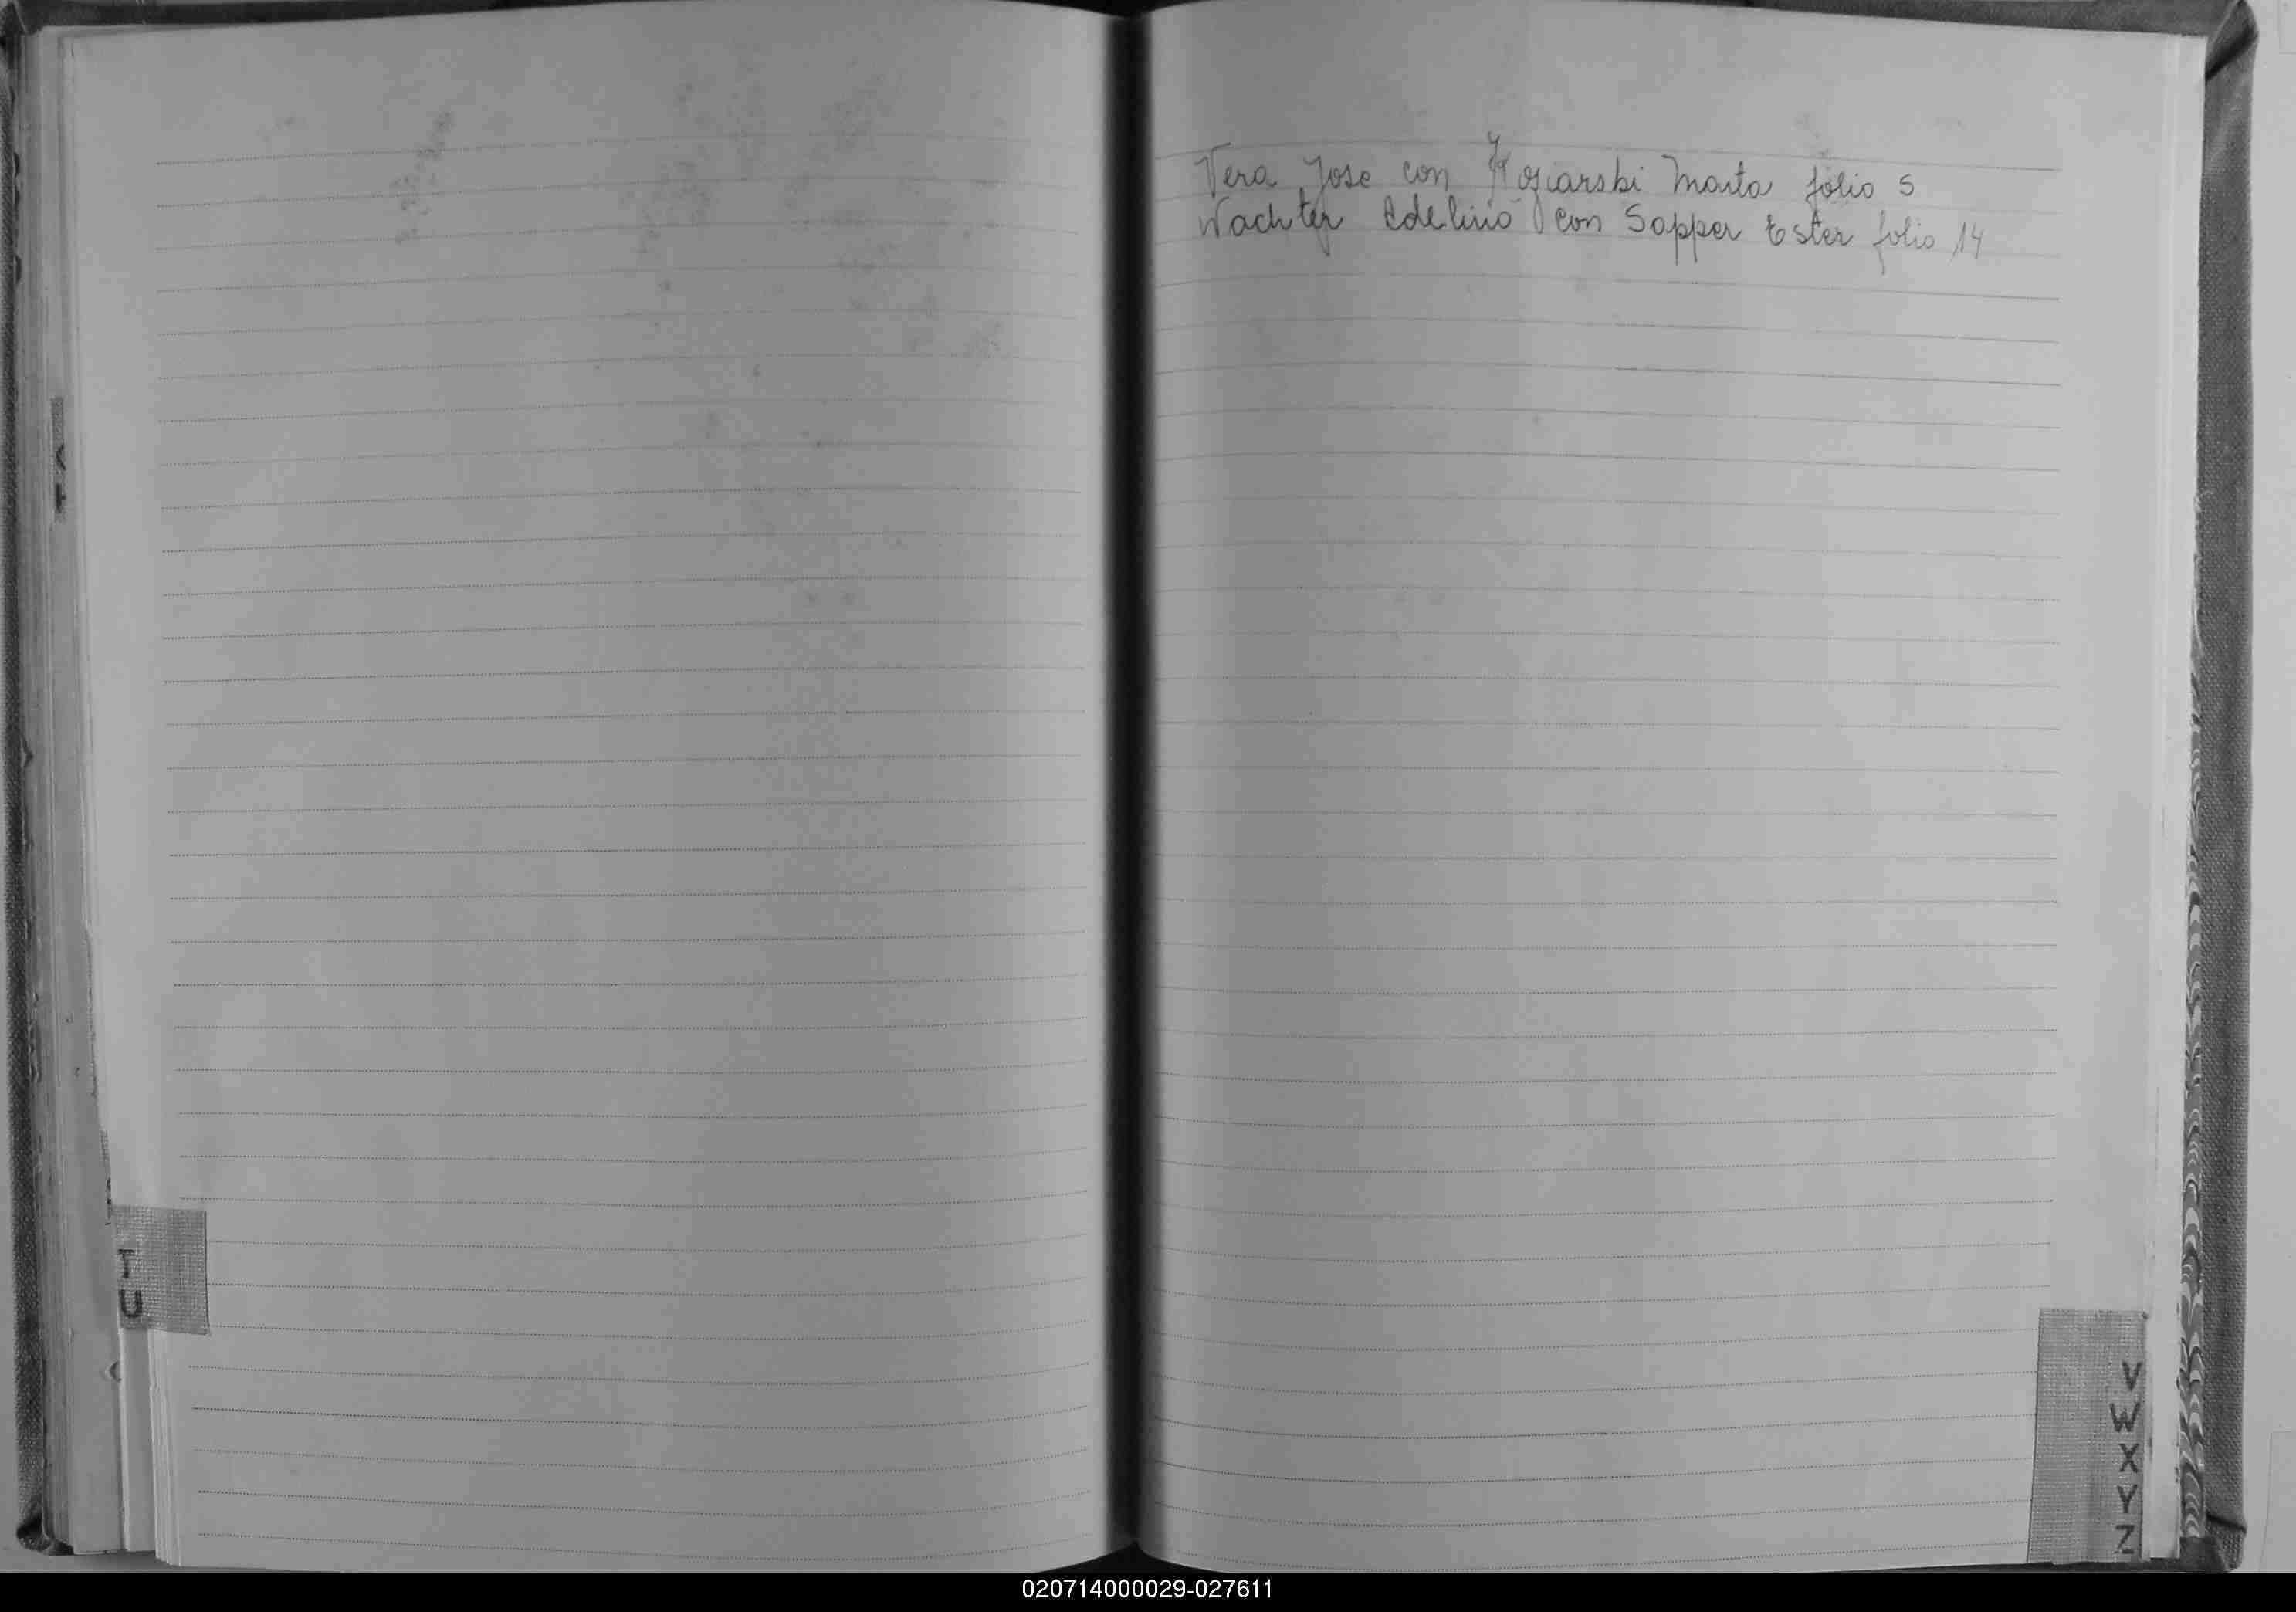 Vera Jose con Koziarski Marta folio 5
Wachter Edelino con Sapper Ester folio 14
T
U
V
W
X
Y
Z
020714000029-027611